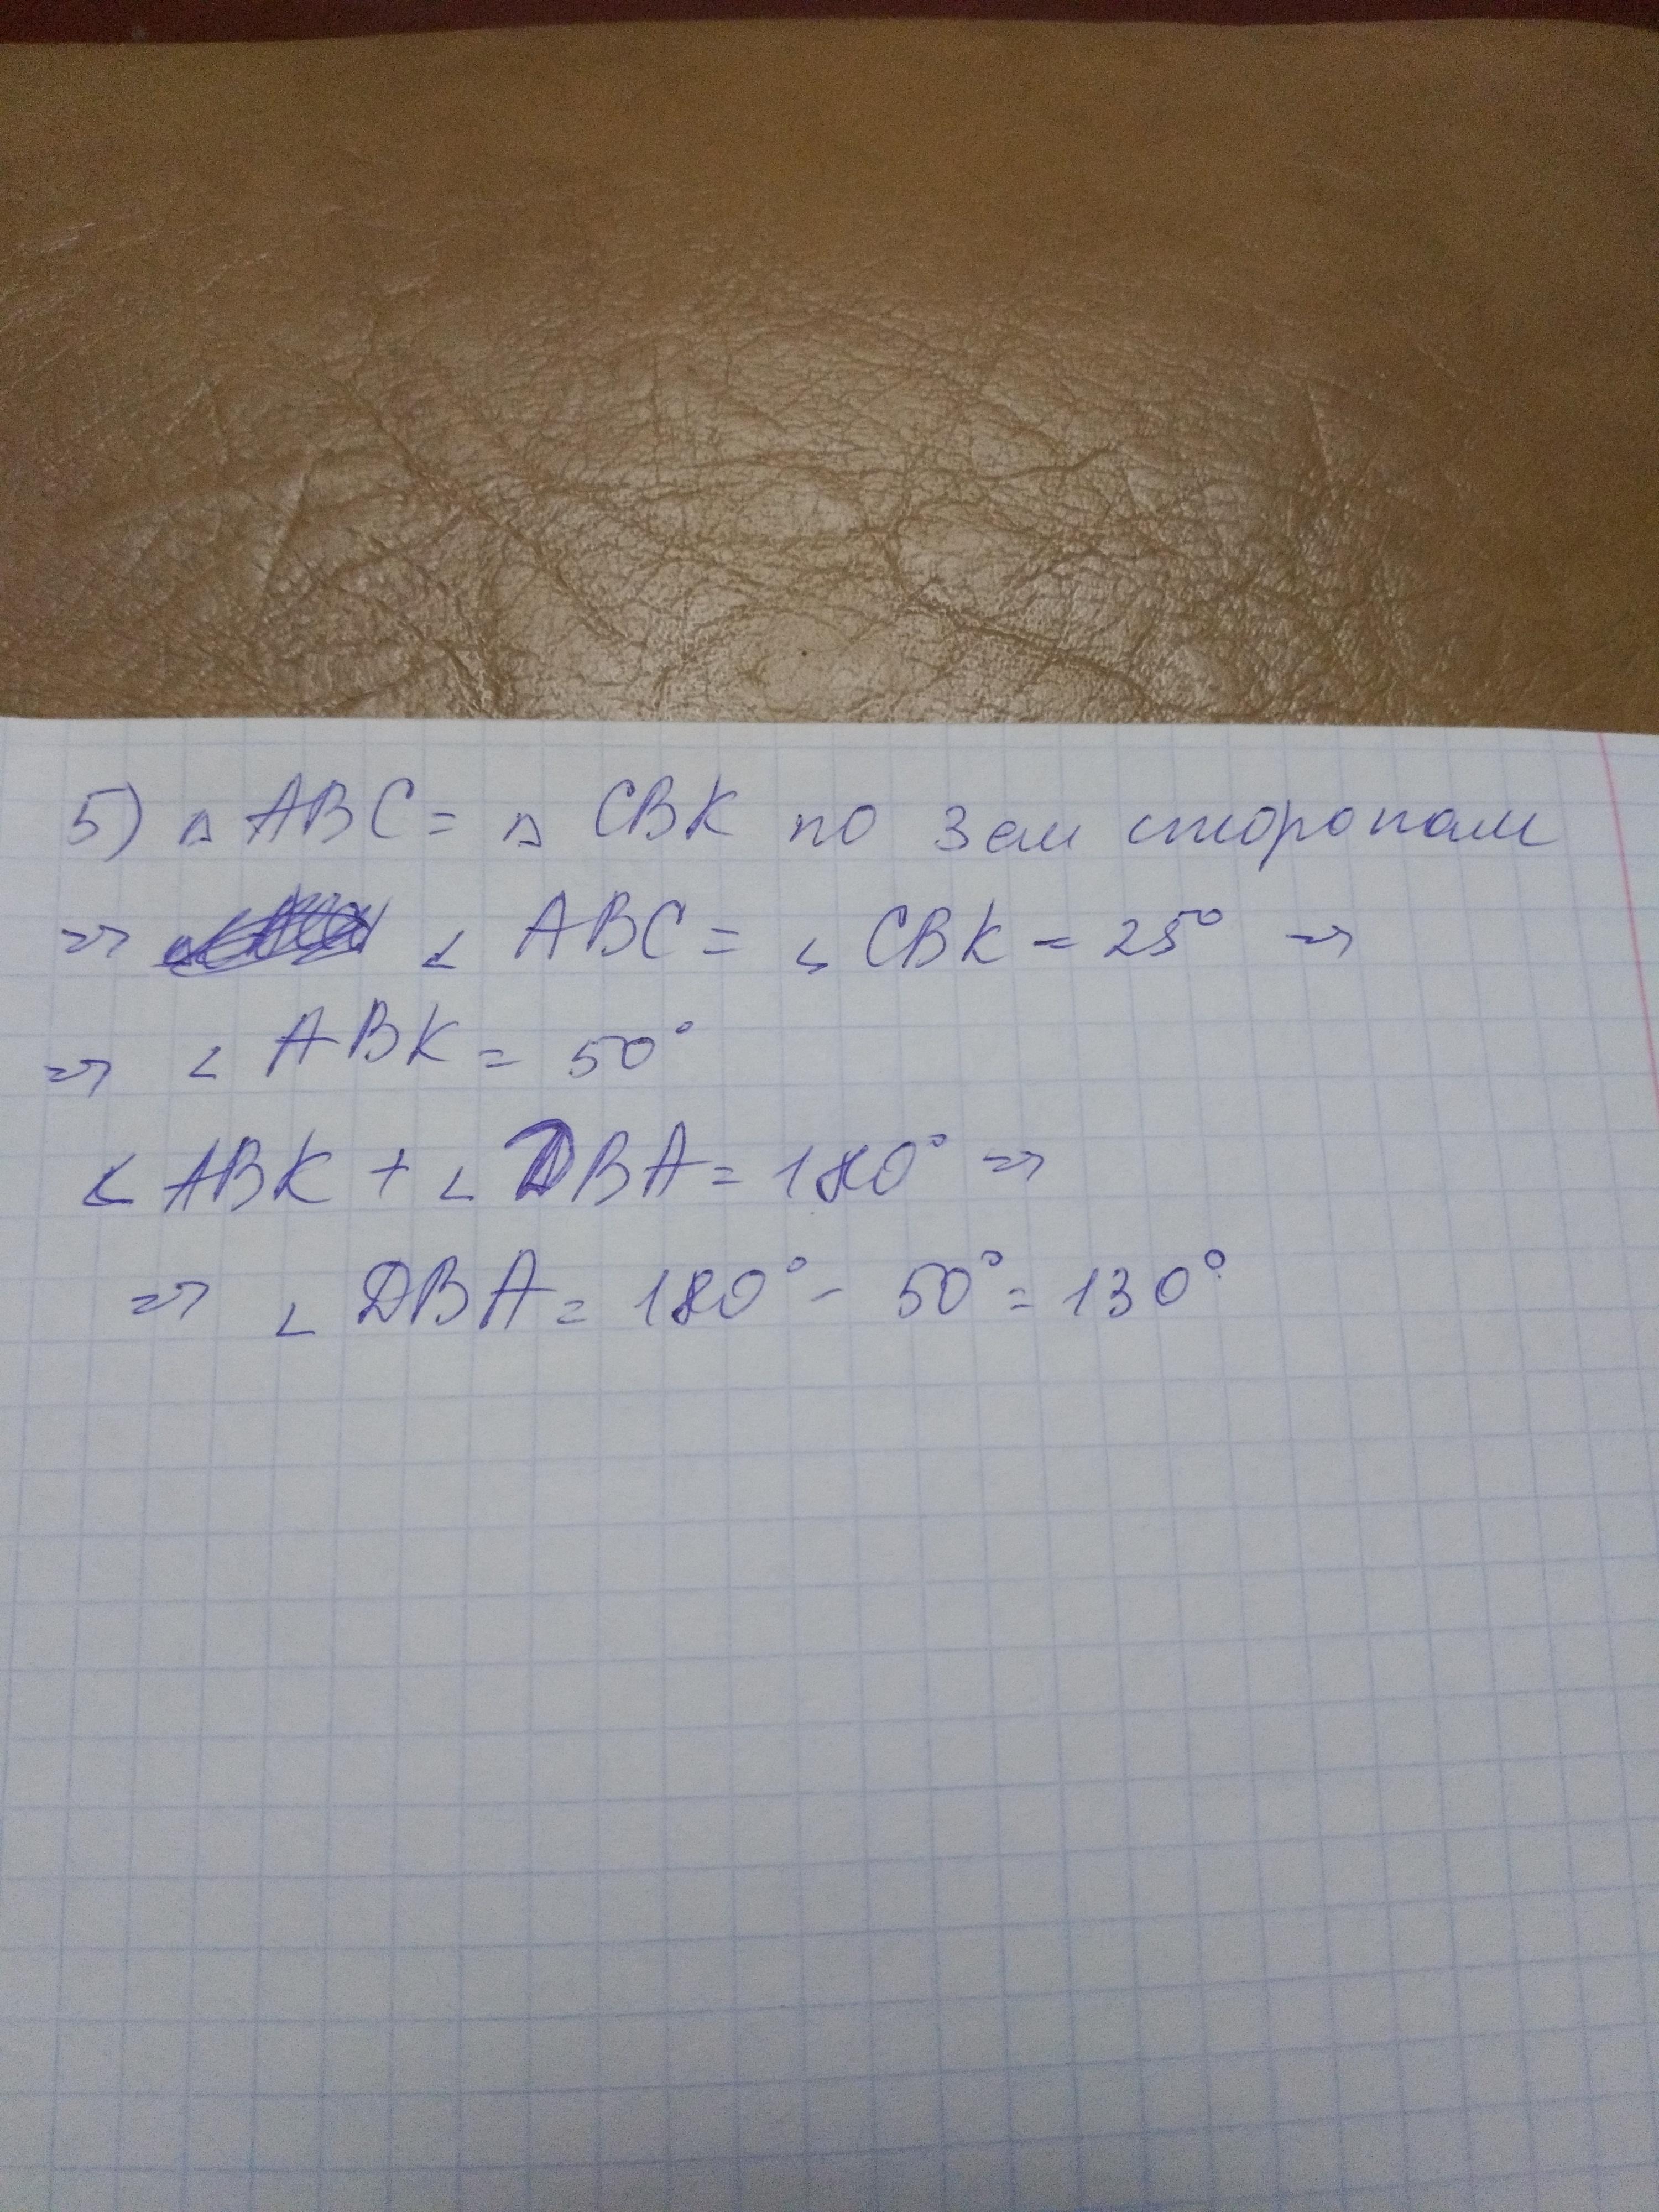 5) △ ABC = △ CBK по 3ем сторонам
=> ∠ ABC = ∠ CBK = 25° =>
=> ∠ ABK = 50°
∠ ABK + ∠ DBA = 180° =>
=> ∠ DBA = 180° - 50° = 130°